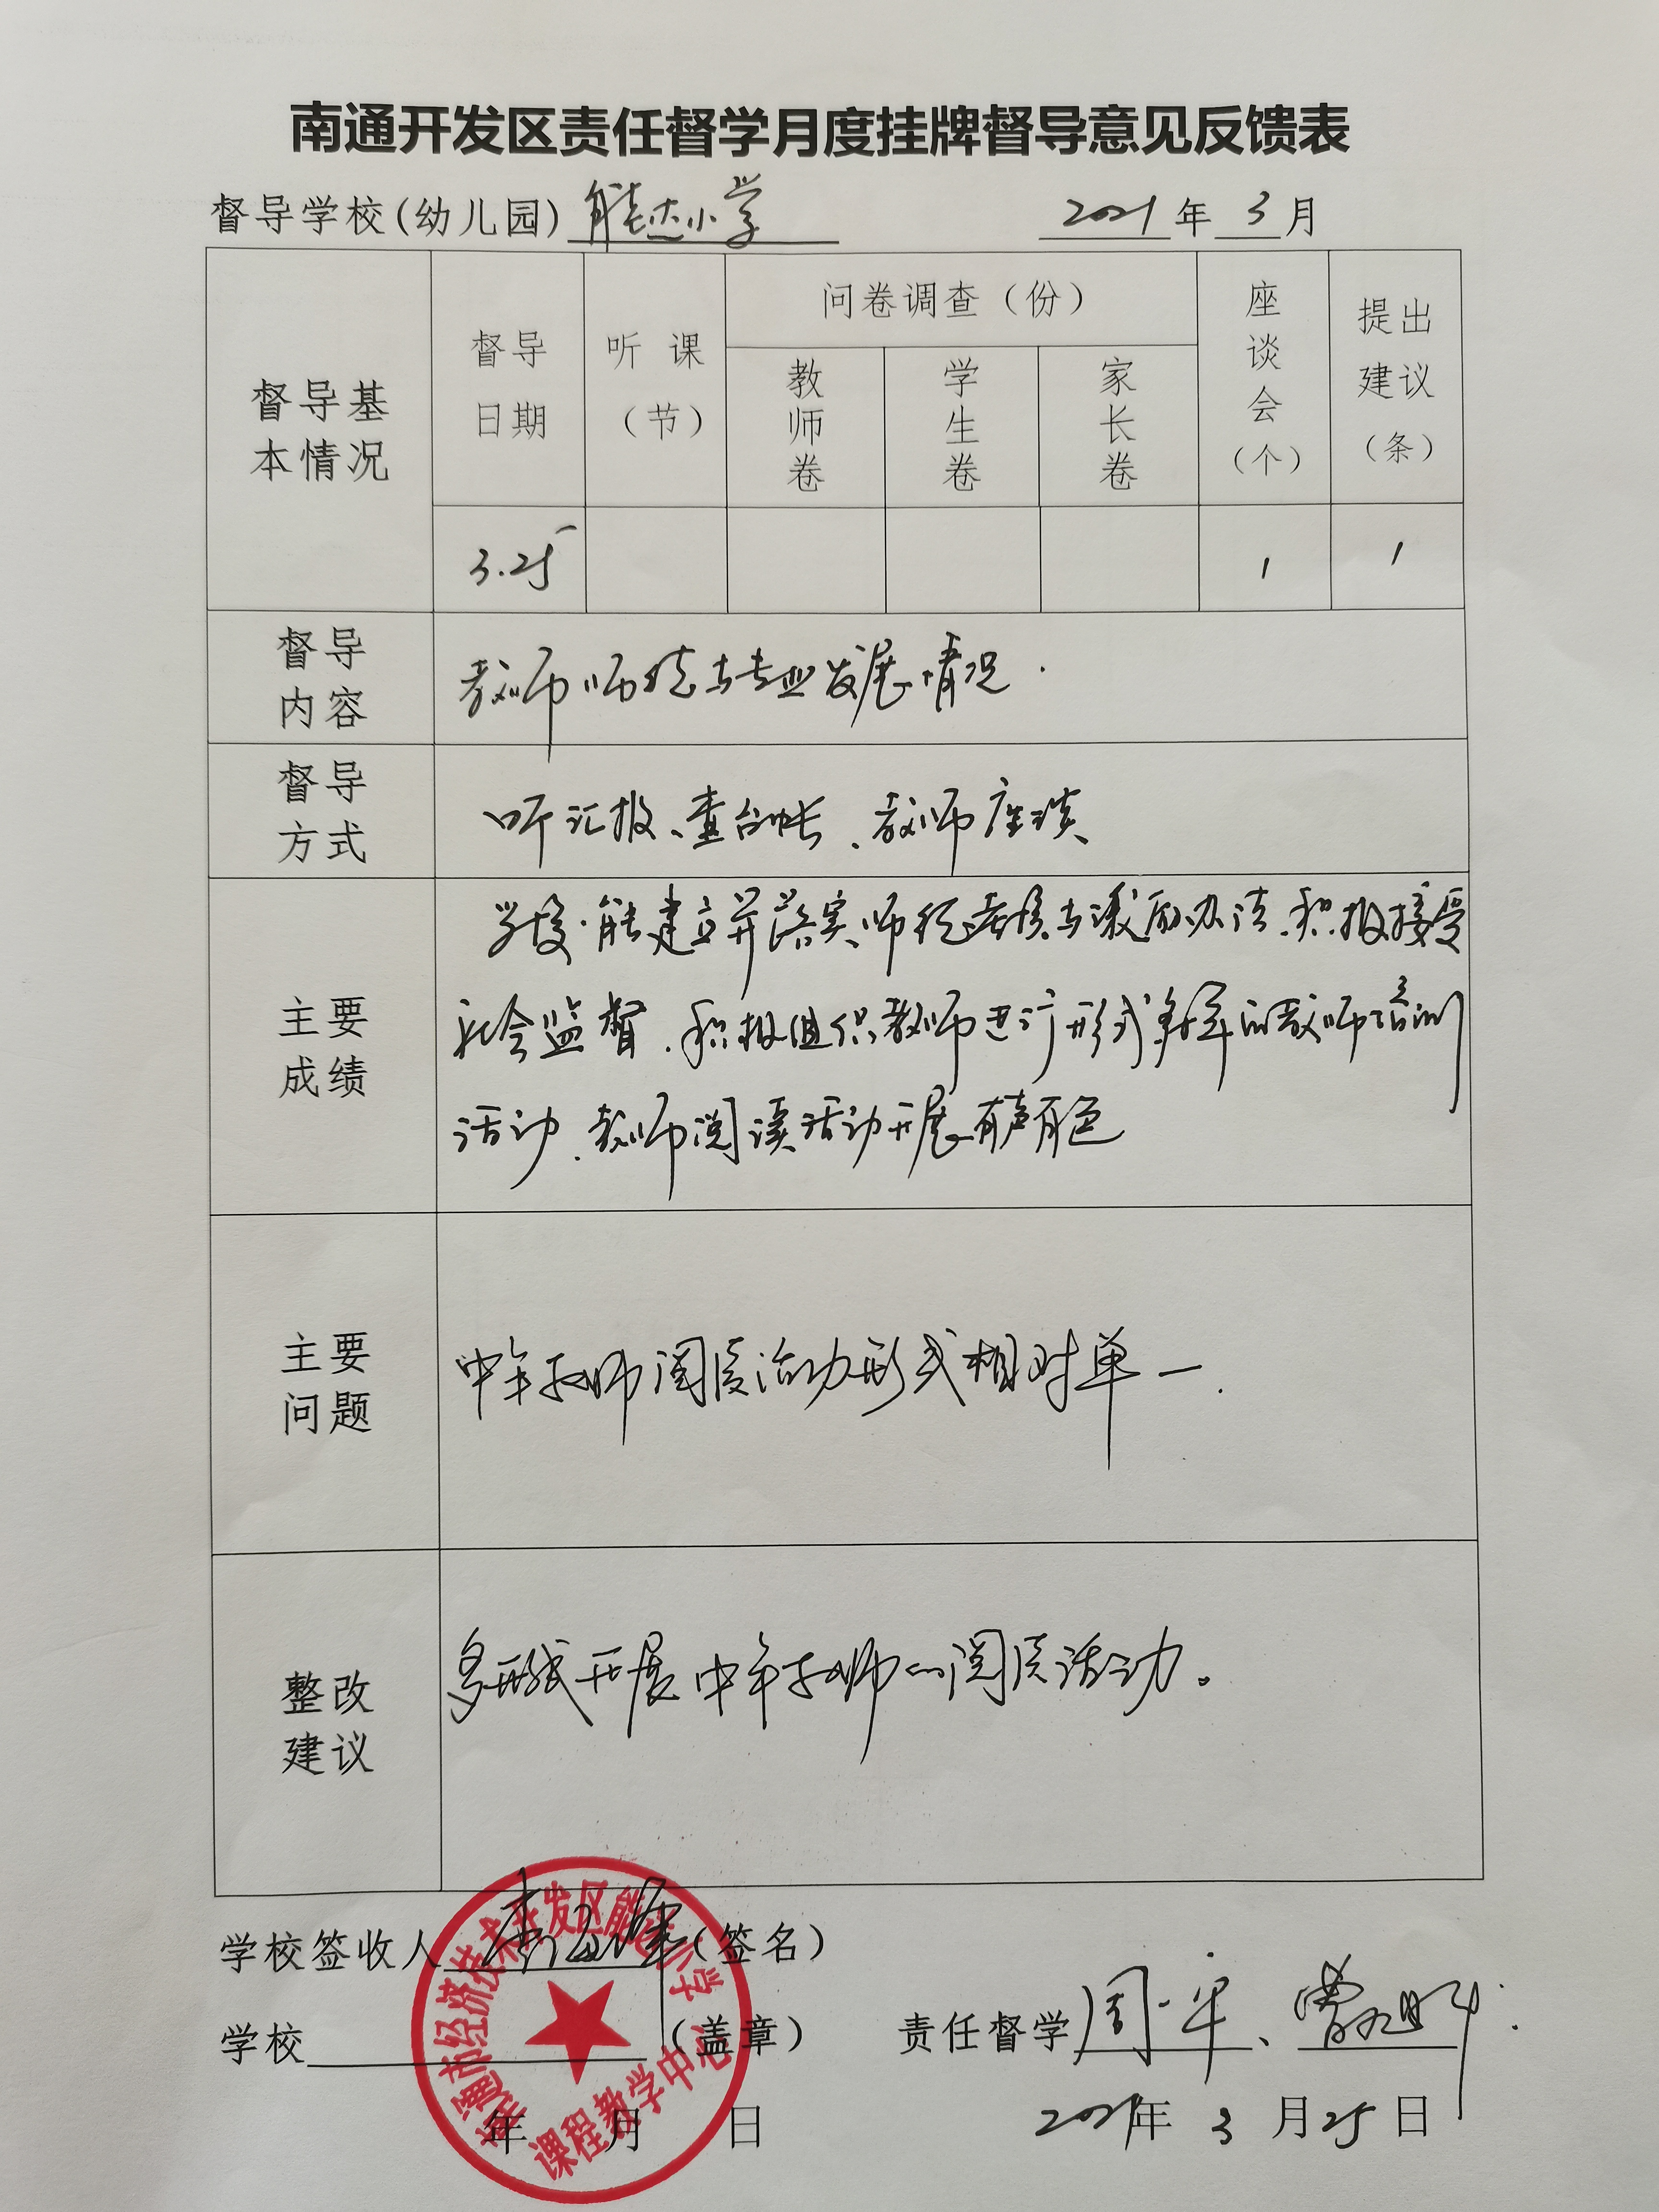 南通开发区责任督学月度挂牌督导意见反馈表
督导学校(幼儿园) 能达小学 2021 年 3 月
督导基本情况
督导日期
听课（节）
问卷调查（份）
教师卷
学生卷
家长卷
座谈会（个）
提出建议（条）
3.25 1 1
督导内容
教师师德与专业发展情况.
督导方式
听汇报、查台帐、教师座谈
主要成绩
学校能建立并落实师德考核与激励办法、积极接受
社会监督、积极组织教师进行形式多样的教师培训
活动、教师阅读活动开展有声有色
主要问题
中年教师阅读活动形式相对单一.
整改建议
多形式开展中年教师的阅读活动。
学校签收人 （签名）
学校 （盖章） 责任督学 周一平、曹旭
年 月 日 2021年 3 月 25 日
南通市经济技术开发区能达小学
课程教学中心